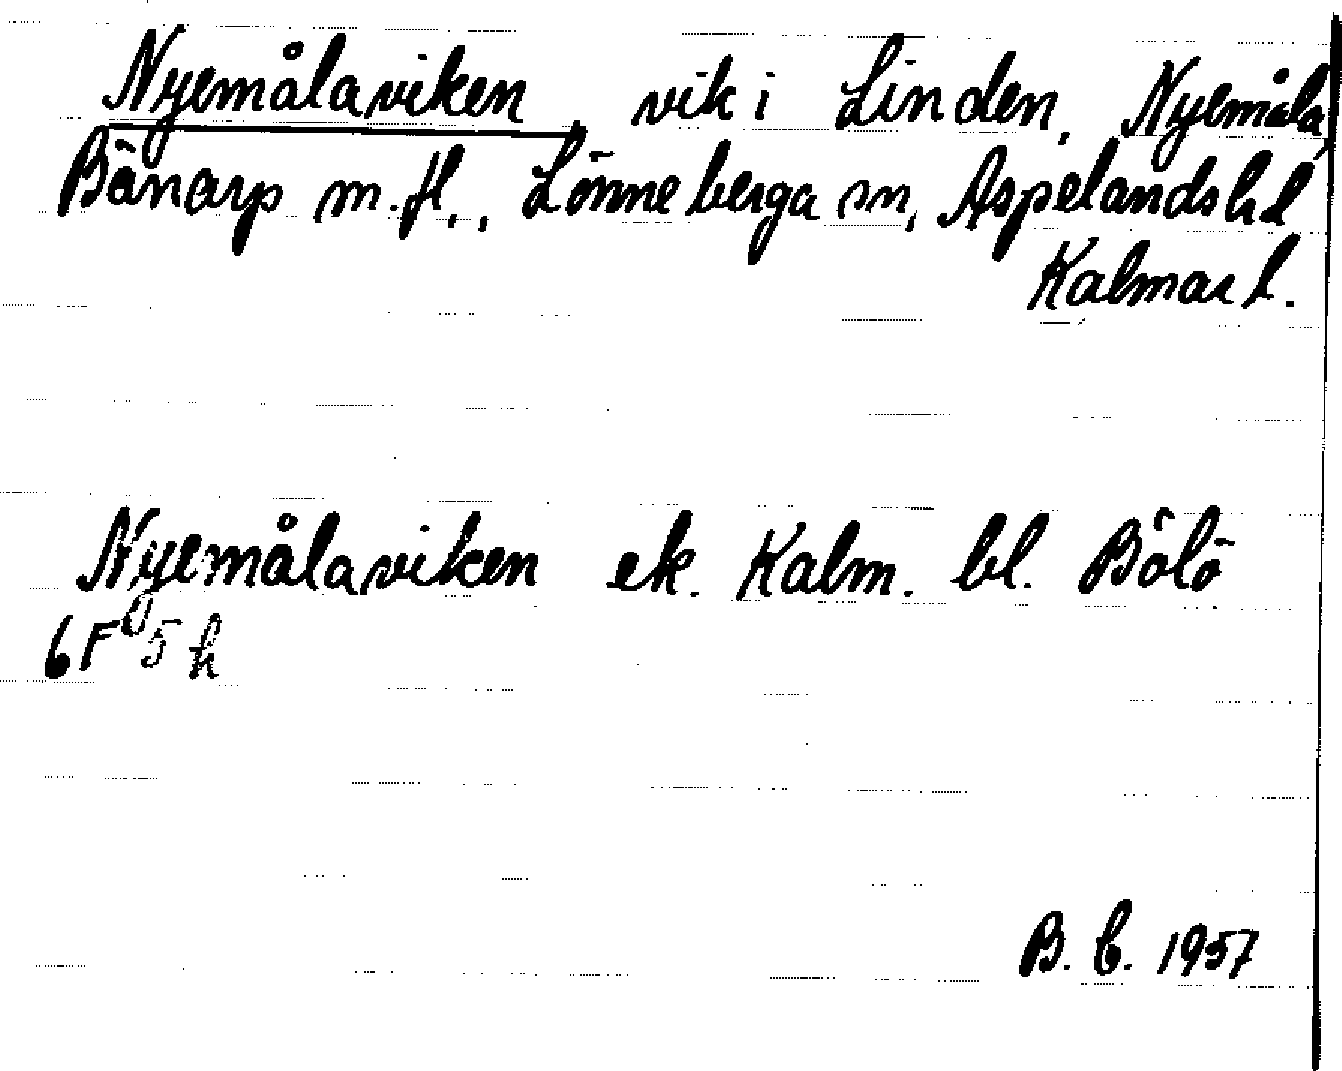 Nyemålaviken vik i Linden, Nyemåla,
Bänarp m.fl., Lönneberga sn, Aspelands hd
Kalmar l.
Nyemålaviken ek. Kalm. bl. Bölö
6F 5h
B. C. 1957